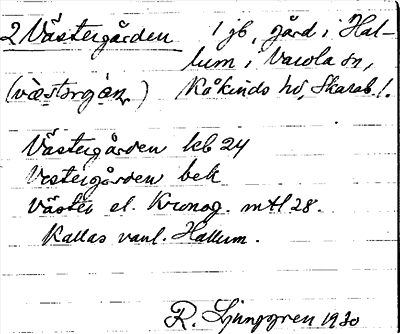 2 Västergården 1 jb, gård i Hal-
lum i Varola sn,
(væstərgán) Kåkinds hd, Skarab. l.
Västergården kb 24
Vestergården bek
Väster el. Kronog. mtl 28.
Kallas vanl. Hallum.
R. Ljunggren 1930